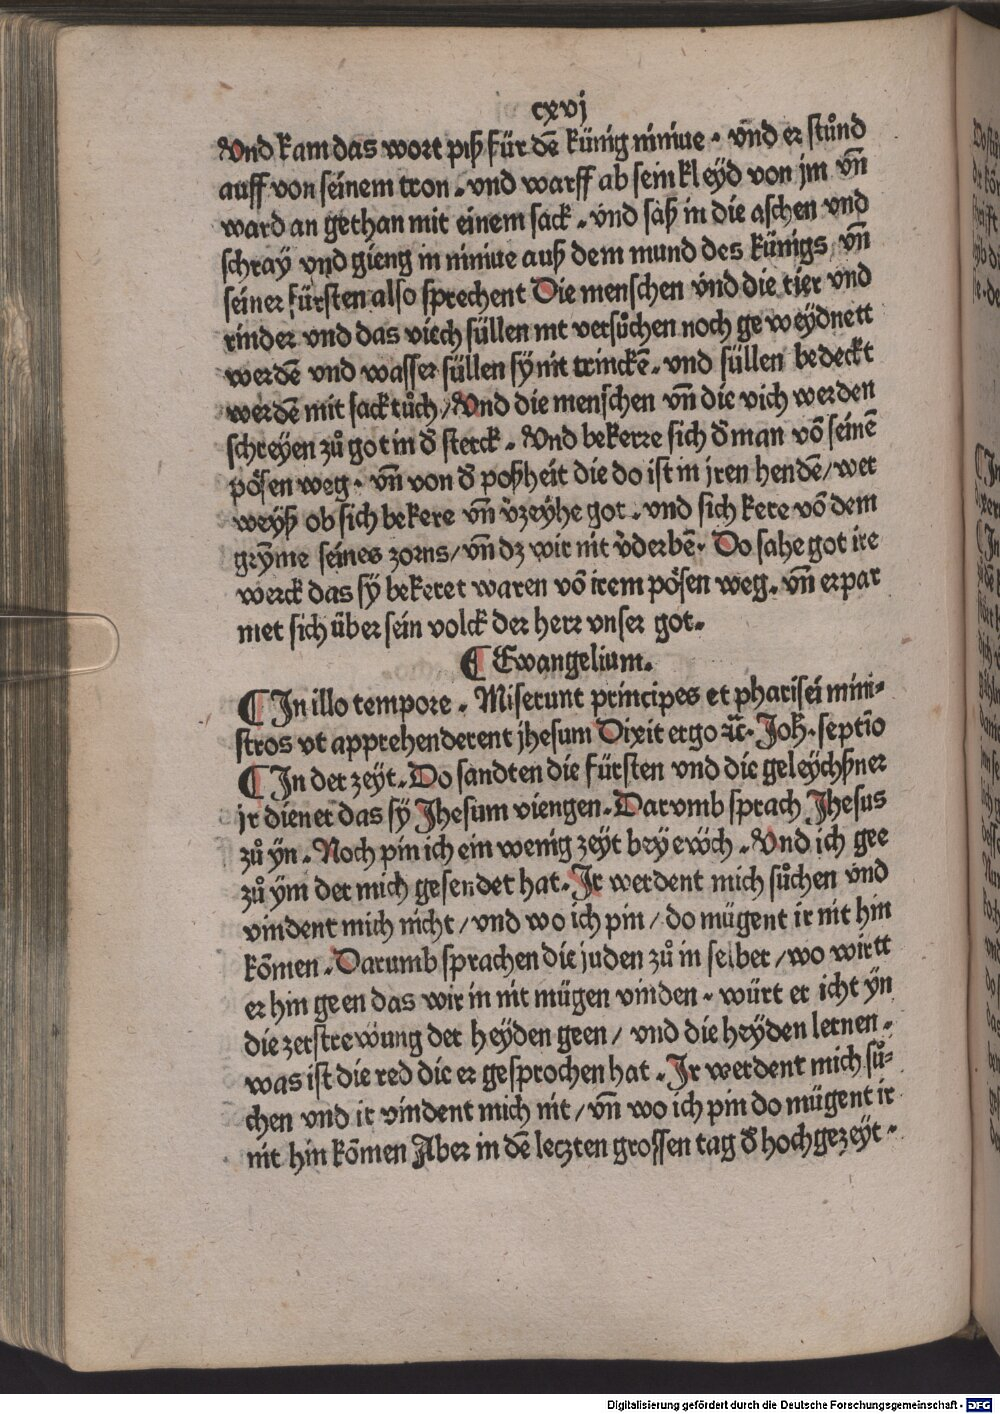 cxvj
Vnd kam das wort piß für dē künig niniue · vnd er stůnd
auff von seinem tron . vnd warff ab sein kleyd von jm vn̄
ward an gethan mit einem sack . vnd saß in die aschen vnd
schray vnd gieng in niniue auß dem mund des künigs vn̄
seiner fürsten also sprechent Die menschen vnd die tier vnd
rinder vnd das viech süllen nit versůchen noch geweydnett
werdē vnd wasser süllen sÿ nit trinckē . vnd süllen bedeckt
werdē mit sack tůch / Vnd die menschen vn̄ die vich werden
schreyen zů got in d̄ sterck . Vnd bekerre sich d̄ man vō seinē
pôsen weg · vn̄ von d̄ poßheit die do ist in jren hendē / wer
weyß ob sich bekere vn̄ v̓zeyhe got . vnd sich kere vō dem
grÿme seines zorns / vn̄ dz wir nit v̓derbē · Do sahe got ire
werck das sÿ bekeret waren vō irem pôsen weg . vn̄ erpar
met sich über sein volck der herr vnser got .
¶ Ewangelium .
¶ In illo tempore . Miserunt principes et pharisei mini⸗
stros vt apprehenderent jhesum Dixit ergo ꝛc̄ · Joh̄ . septīo
¶ In der zeyt . Do sandten die fürsten vnd die geleychßner
jr diener das sÿ Jhesum viengen . Darvmb sprach Jhesus
zů ÿn . Noch pin ich ein wenig zeyt bey ewch . Vnd ich gee
zů ÿm der mich gesendet hat . Jr werdent mich sůchen vnd
vindent mich nicht / vnd wo ich pin / do mügent ir nit hin
kōmen . Darumb sprachen die juden zů in selber / wo wirtt
er hin geen das wir in nit mügen vinden . würt er icht ÿn
die zerstrewung der heyden geen / vnd die heyden lernen .
was ist die red die er gesprochen hat . Jr werdent mich sů⸗
chen vnd ir vindent mich nit / vn̄ wo ich pin do mügent ir
nit hin kōmen Aber in dē leczten grossen tag d̄ hochgezeyt .
Digitalisierung gefördert durch die Deutsche Forschungsgemeinschaft - DFG